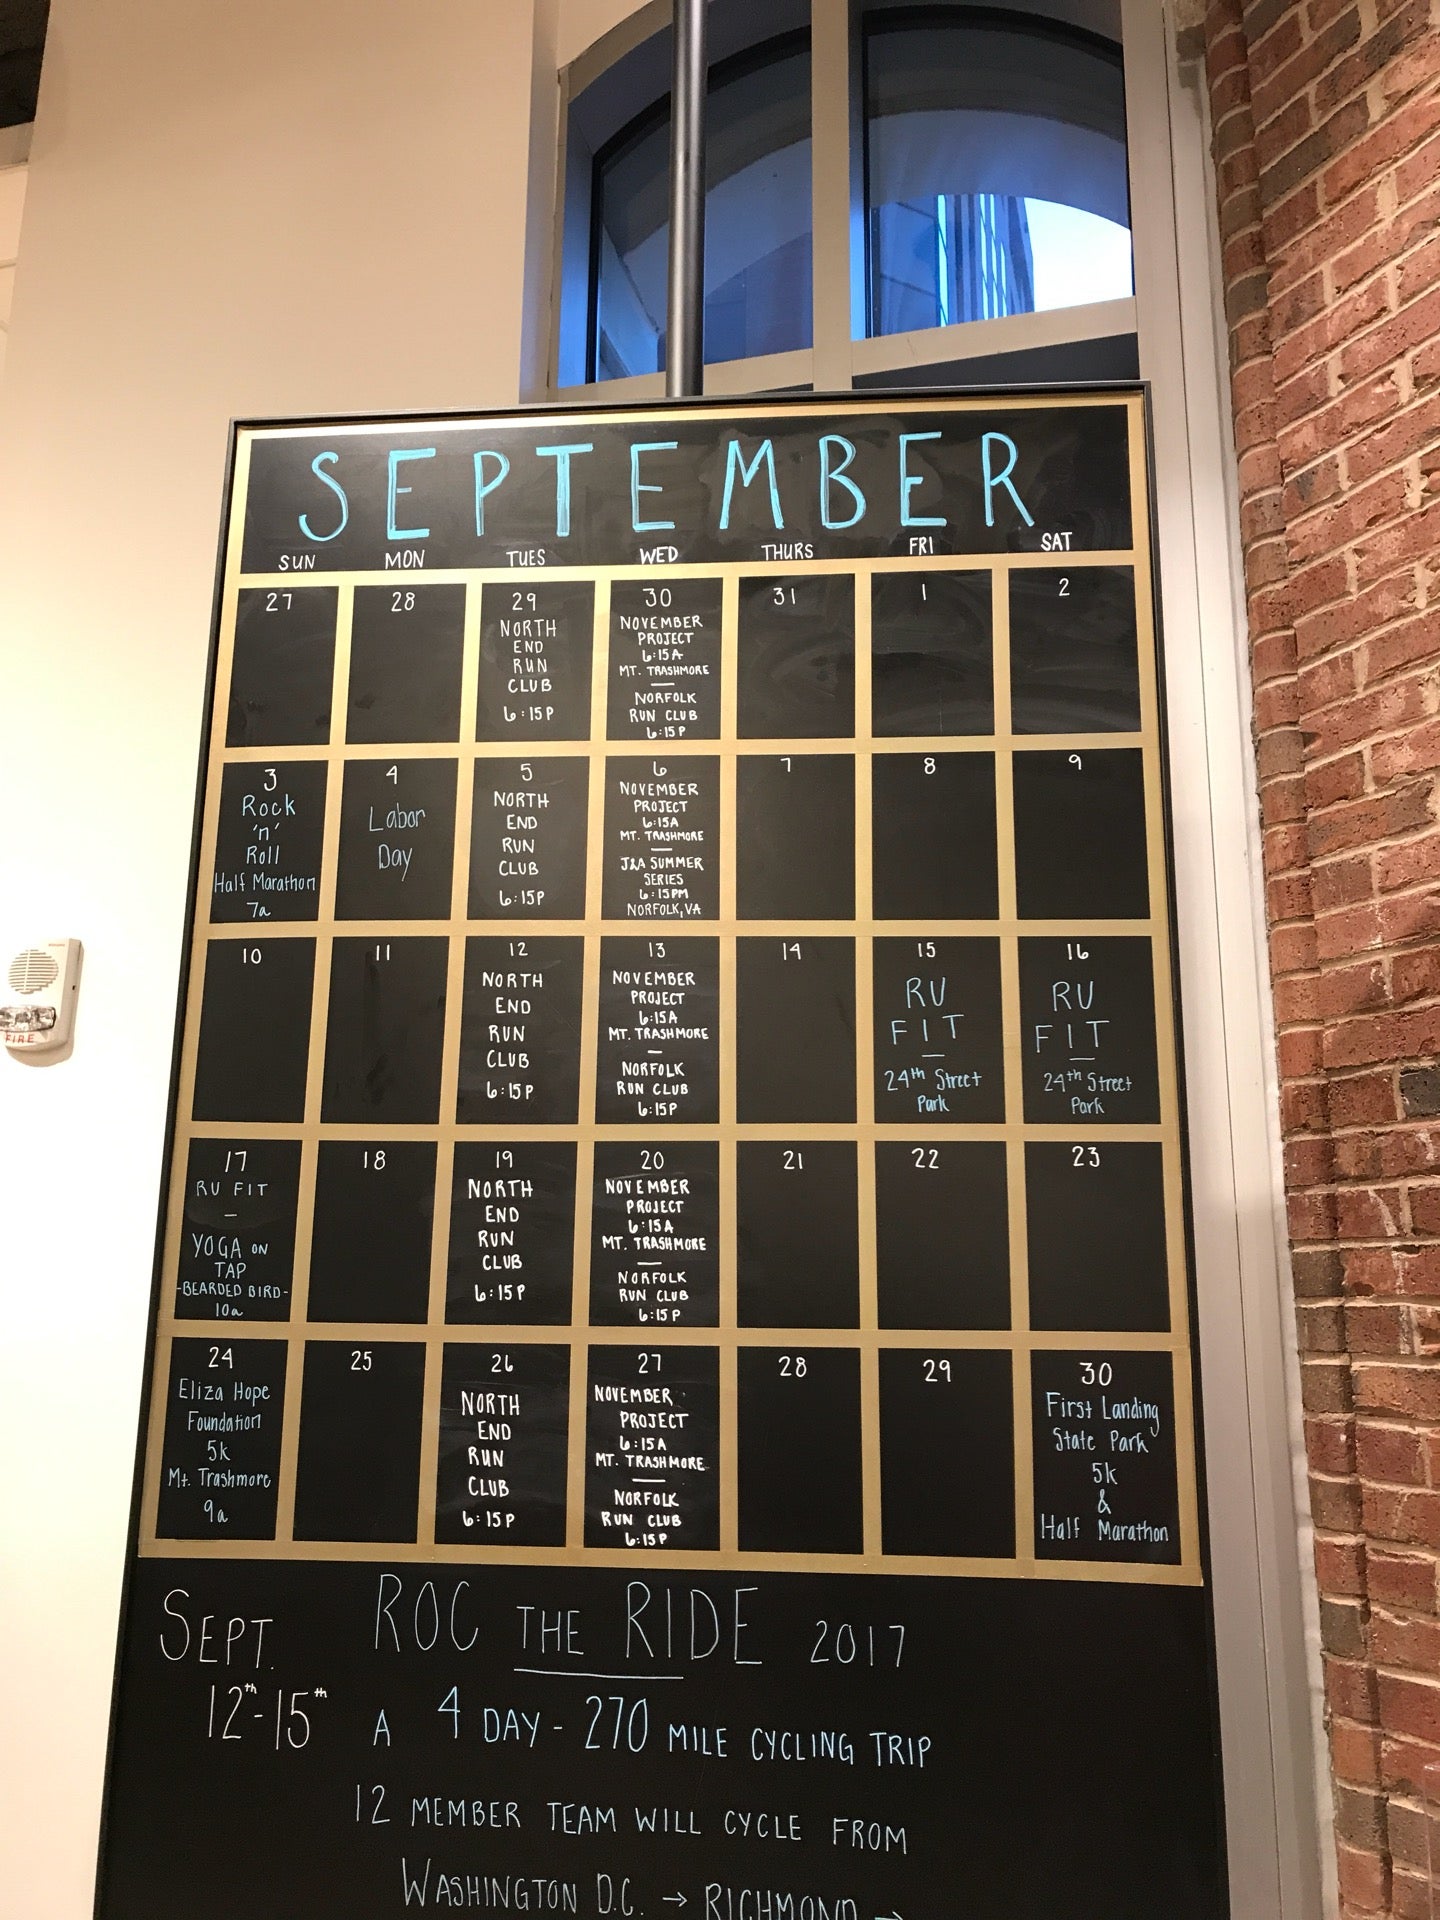 SEPTEMBER
SUN MON TUES WED THURS FRI SAT
27
28
29
NORTH
END
RUN
CLUB
6:15P
30
NOVEMBER
PROJECT
6:15A
MT. TRASHMORE
—
NORFOLK
RUN CLUB
6:15P
31
1
2
3
Rock
'n'
Roll
Half Marathon
7a
4
Labor
Day
5
NORTH
END
RUN
CLUB
6:15P
6
NOVEMBER
PROJECT
6:15A
MT. TRASHMORE
—
J&A SUMMER
SERIES
6:15PM
NORFOLK, VA
7
8
9
10
11
12
NORTH
END
RUN
CLUB
6:15P
13
NOVEMBER
PROJECT
6:15A
MT. TRASHMORE
—
NORFOLK
RUN CLUB
6:15P
14
15
RU
FIT
—
24th Street
Park
16
RU
FIT
—
24th Street
Park
17
RU FIT
—
YOGA ON
TAP
-BEARDED BIRD-
10a
18
19
NORTH
END
RUN
CLUB
6:15P
20
NOVEMBER
PROJECT
6:15A
MT. TRASHMORE
—
NORFOLK
RUN CLUB
6:15P
21
22
23
24
Eliza Hope
Foundation
5k
Mt. Trashmore
9a
25
26
NORTH
END
RUN
CLUB
6:15P
27
NOVEMBER
PROJECT
6:15A
MT. TRASHMORE
—
NORFOLK
RUN CLUB
6:15P
28
29
30
First Landing
State Park
5k
&
Half Marathon
SEPT. ROC THE RIDE 2017
12th-15th A 4 DAY - 270 MILE CYCLING TRIP
12 MEMBER TEAM WILL CYCLE FROM
WASHINGTON D.C. → RICHMOND →
FIRE